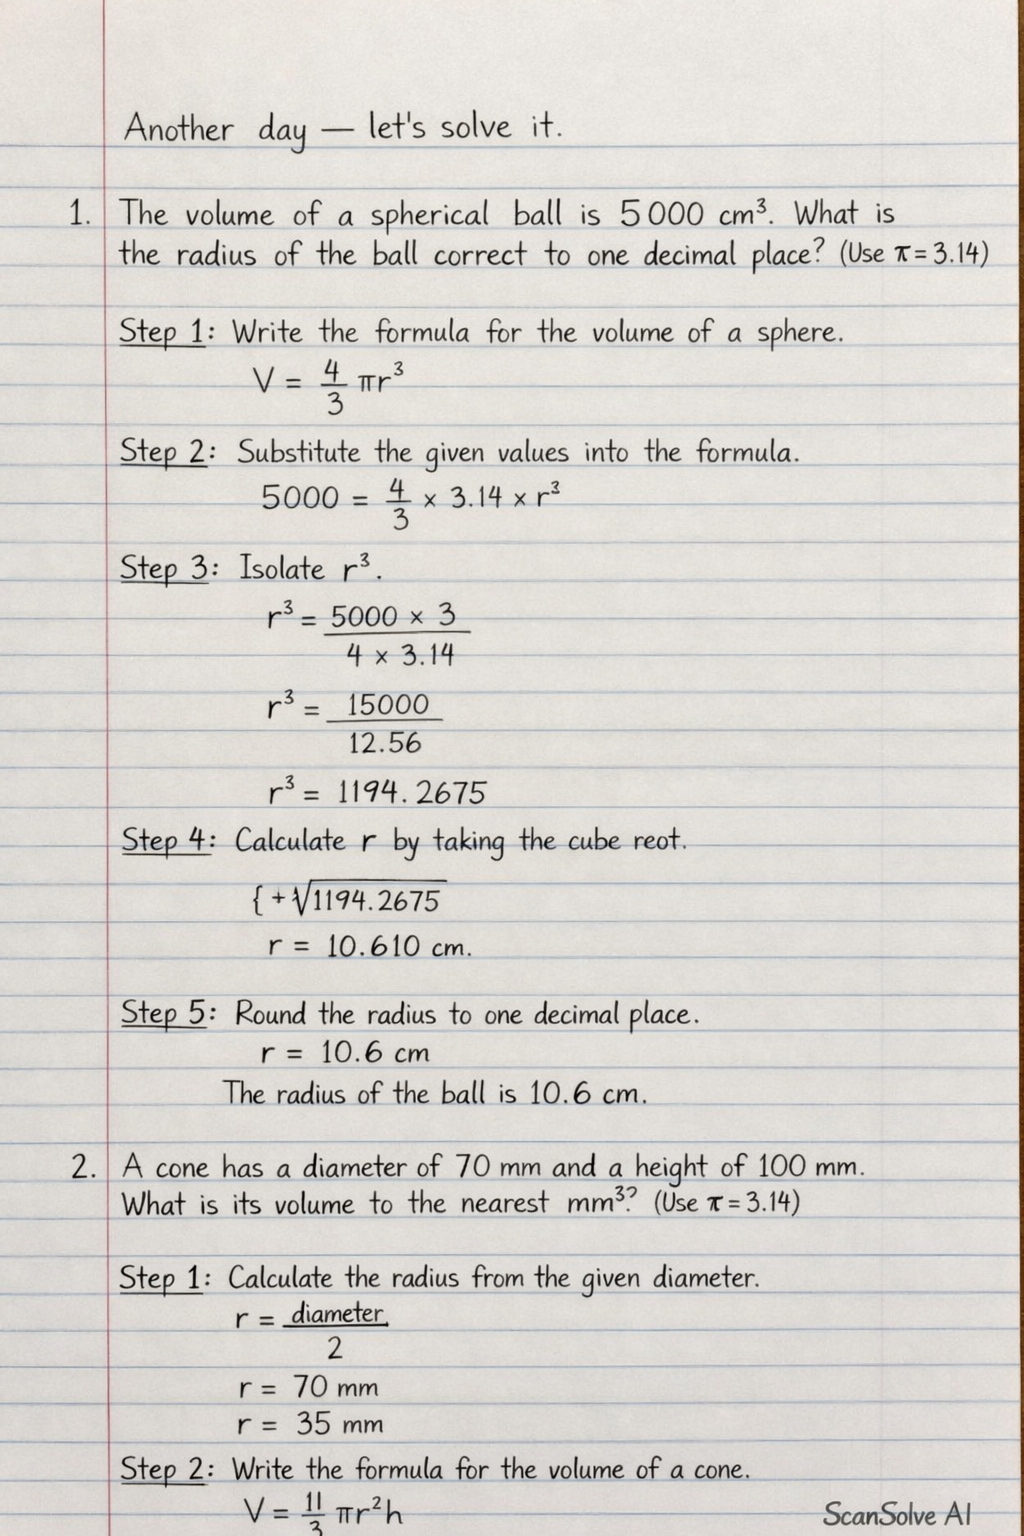 Another day — let's solve it.
1. The volume of a spherical ball is 5000 cm³. What is
the radius of the ball correct to one decimal place? (Use π = 3.14)
Step 1: Write the formula for the volume of a sphere.
V = 4/3 πr³
Step 2: Substitute the given values into the formula.
5000 = 4/3 × 3.14 × r³
Step 3: Isolate r³.
r³ = 5000 × 3 / 4 × 3.14
r³ = 15000 / 12.56
r³ = 1194.2675
Step 4: Calculate r by taking the cube reot.
{ + ∛1194.2675
r = 10.610 cm.
Step 5: Round the radius to one decimal place.
r = 10.6 cm
The radius of the ball is 10.6 cm.
2. A cone has a diameter of 70 mm and a height of 100 mm.
What is its volume to the nearest mm³? (Use π = 3.14)
Step 1: Calculate the radius from the given diameter.
r = diameter / 2
r = 70 mm
r = 35 mm
Step 2: Write the formula for the volume of a cone.
V = 11/3 πr²h
ScanSolve AI